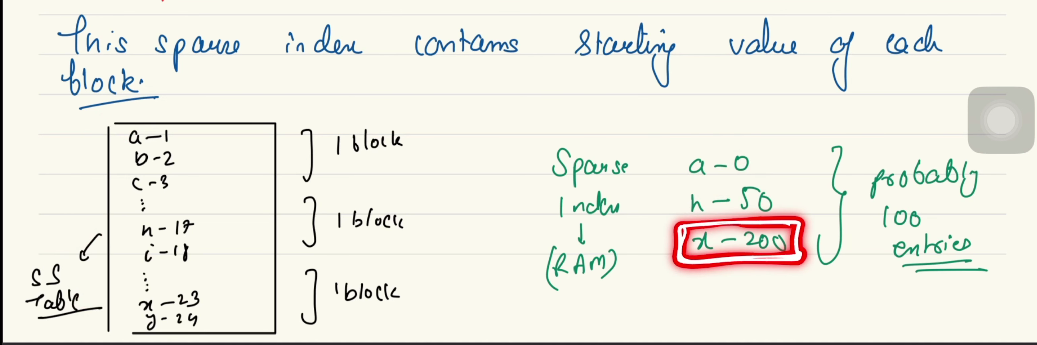 This sparse index contains starting value of each
block.
a-1
b-2
c-3
⋮
h-17
i-18
⋮
x-23
y-24
SS
Table
1 block
1 block
1 block
Sparse
Index
↓
(RAM)
a-0
h-50
x-200
probably
100
entries